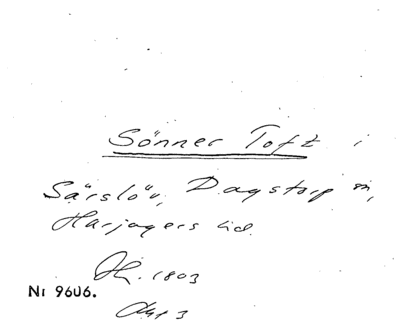 Sönner Toft i
Särslöv, Dagstorp sn,
Harjagers hd.
Fk. 1803
Nr 9606.